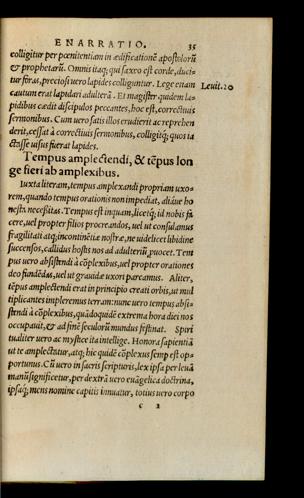 ENARRATIO. 35
colligitur per pœnitentiam in ædificationẽ apostolorũ
& prophetarũ. Omnis itaq; qui saxeo est corde, duci-
tur foras, preciosi uero lapides colliguntur. Lege etiam Leuit. 20
cautum erat lapidari adulterã. Et magister quidem la-
pidibus cædit discipulos peccantes, hoc est, correctiuis
sermonibus. Cum uero satis illos erudierit ac reprehen
derit, cessat à correctiuis sermonibus, colligitq; quos ia
ctasse uisus fuerat lapides.
Tempus amplectendi, & tẽpus lon
ge fieri ab amplexibus.
Iuxta literam, tempus amplexandi propriam uxo-
rem, quando tempus orationis non impediat, aliaue ho
nesta necessitas. Tempus est inquam, licetq; id nobis fa
cere, uel propter filios procreandos, uel ut consulamus
fragilitati atq; incontinẽtiæ nostræ, ne uidelicet libidine
succensos, callidus hostis nos ad adulteriũ, puocet. Tem
pus uero absistendi à cõplexibus, uel propter orationes
deo fundẽdas, uel ut grauidæ uxori parcamus. Aliter,
tẽpus amplectendi erat in principio creati orbis, ut mul
tiplicantes impleremus terram: nunc uero tempus absi-
stendi à cõplexibus, quãdoquidẽ extrema hora diei nos
occupauit, & ad finẽ seculorũ mundus festinat. Spiri
tualiter uero ac mysticè ita intellige. Honora sapientiã
ut te amplectatur, atq; hic quidẽ cõplexus semp est op-
portunus. Cũ uero in sacris scripturis, lex ipsa per leuã
manũ significetur, per dextrã uero euãgelica doctrina,
ipsaq; mens nomine capitis innuatur, totius uero corpo